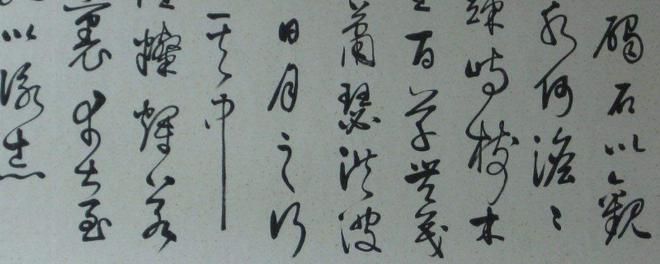 碣石以觀
水何澹〻
竦峙樹木
百草豐茂
蕭瑟洪波
日月之行
其中
燦爛若
裏幸甚至
以詠志